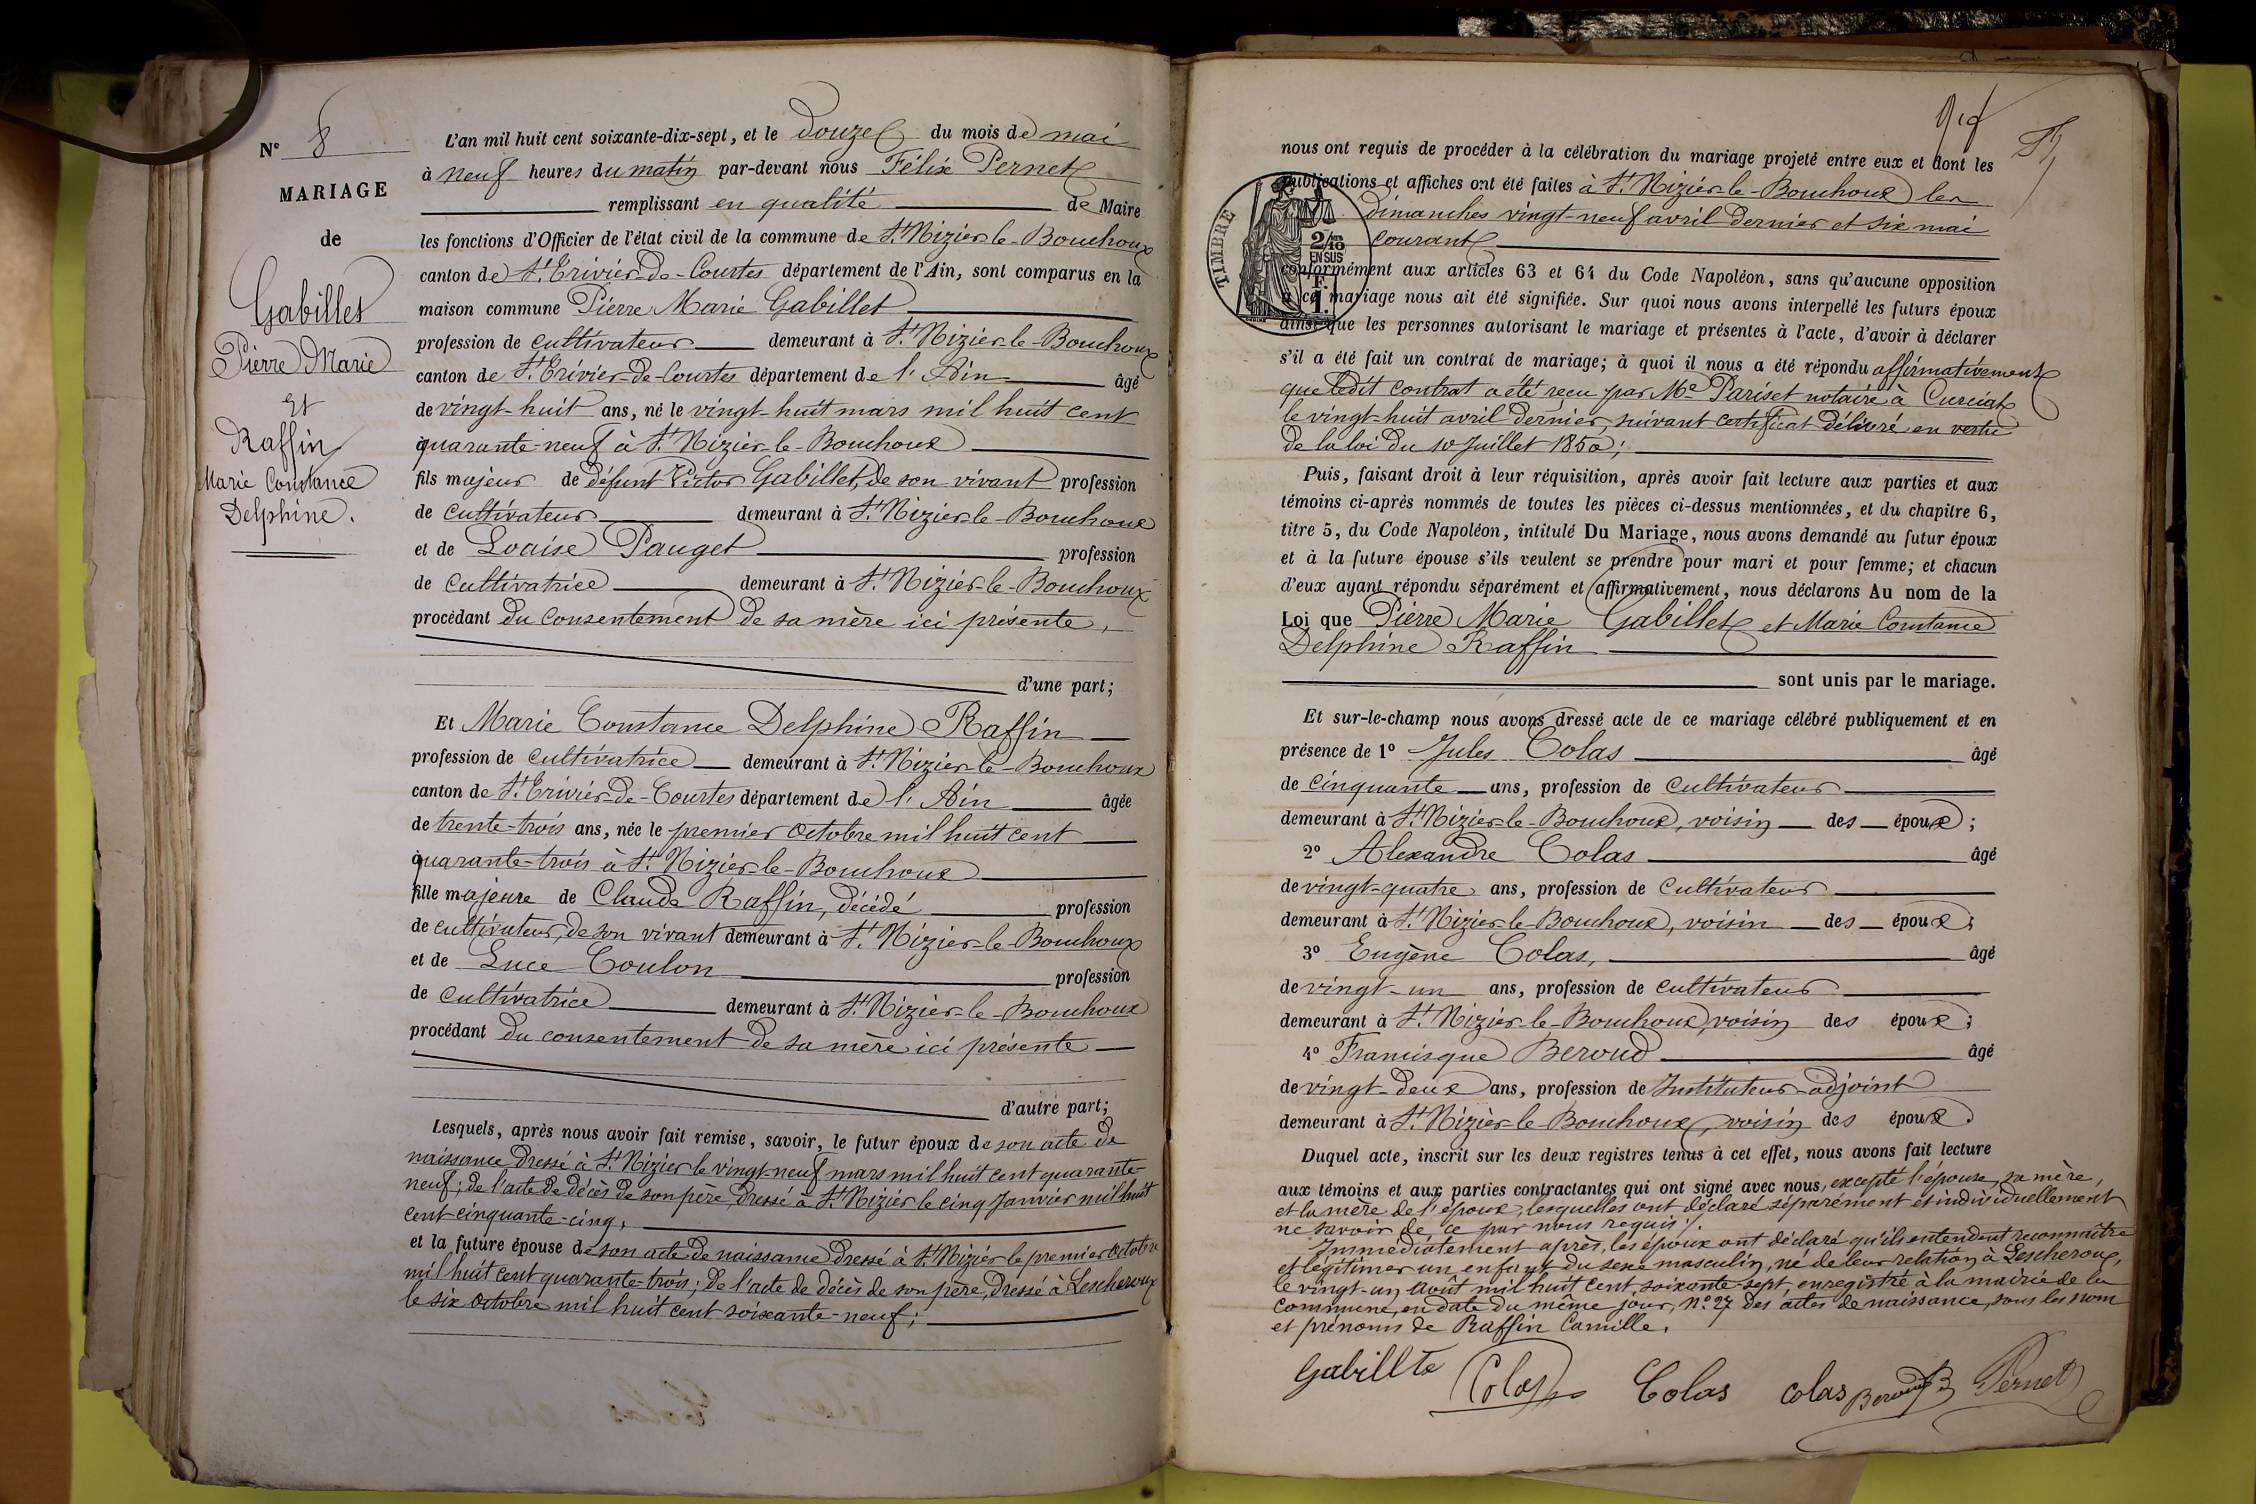 N° 8
MARIAGE
de
Gabillet
Pierre Marie
Et
Raffin
Marie Constance
Delphine.
L'an mil huit cent soixante-dix-sept, et le douze du mois de mai
à neuf heures du matin par-devant nous Félix Pernet
remplissant en qualité de Maire
les fonctions d'Officier de l'état civil de la commune de St Nizier-le-Bouchoux
canton de St Trivier-de-Courtes département de l'Ain, sont comparus en la
maison commune Pierre Marie Gabillet
profession de cultivateur demeurant à St Nizier-le-Bouchoux
canton de St Trivier-de-Courtes département de l'Ain âgé
de vingt-huit ans, né le vingt-huit mars mil huit cent
quarante-neuf à St Nizier-le-Bouchoux
fils majeur de défunt Victor Gabillet, de son vivant profession
de cultivateur demeurant à St Nizier-le-Bouchoux
et de Louise Pauget profession
de cultivatrice demeurant à St Nizier-le-Bouchoux
procédant du consentement de sa mère ici présente,
d'une part;
Et Marie Constance Delphine Raffin
profession de cultivatrice demeurant à St Nizier-le-Bouchoux
canton de St Trivier-de-Courtes département de l'Ain âgée
de trente-trois ans, née le premier Octobre mil huit cent
quarante-trois à St Nizier-le-Bouchoux
fille majeure de Claude Raffin, décédé profession
de cultivateur, de son vivant demeurant à St Nizier-le-Bouchoux
et de Luce Coulon profession
de cultivatrice demeurant à St Nizier-le-Bouchoux
procédant du consentement de sa mère ici présente
d'autre part;
Lesquels, après nous avoir fait remise, savoir, le futur époux de son acte de
naissance dressé à St Nizier le vingt-neuf mars mil huit cent quarante-
neuf; de l'acte de décès de son père, dressé à St Nizier le cinq Janvier mil huit
cent cinquante-cinq,
et la future épouse de son acte de naissance dressé à St Nizier le premier Octobre
mil huit cent quarante-trois; de l'acte de décès de son père, dressé à Lescheroux
le six Octobre mil huit cent soixante-neuf;
nous ont requis de procéder à la célébration du mariage projeté entre eux et dont les
publications et affiches ont été faites à St Nizier-le-Bouchoux les
dimanches vingt-neuf avril dernier et six mai
courant
TIMBRE
2/10
EN SUS
F.
1.
conformément aux articles 63 et 64 du Code Napoléon, sans qu'aucune opposition
à ce mariage nous ait été signifiée. Sur quoi nous avons interpellé les futurs époux
ainsi que les personnes autorisant le mariage et présentes à l'acte, d'avoir à déclarer
s'il a été fait un contrat de mariage; à quoi il nous a été répondu affirmativement
que ledit contrat a été reçu par Me Pariset notaire à Curciat
le vingt-huit avril dernier, suivant certificat délivré en vertu
de la loi du 10 Juillet 1850;
Puis, faisant droit à leur réquisition, après avoir fait lecture aux parties et aux
témoins ci-après nommés de toutes les pièces ci-dessus mentionnées, et du chapitre 6,
titre 5, du Code Napoléon, intitulé Du Mariage, nous avons demandé au futur époux
et à la future épouse s'ils veulent se prendre pour mari et pour femme; et chacun
d'eux ayant répondu séparément et affirmativement, nous déclarons Au nom de la
Loi que Pierre Marie Gabillet et Marie Constance
Delphine Raffin
sont unis par le mariage.
Et sur-le-champ nous avons dressé acte de ce mariage célébré publiquement et en
présence de 1° Jules Colas âgé
de cinquante ans, profession de cultivateur
demeurant à St Nizier-le-Bouchoux, voisin des époux;
2° Alexandre Colas âgé
de vingt-quatre ans, profession de cultivateur
demeurant à St Nizier-le-Bouchoux, voisin des époux;
3° Eugène Colas, âgé
de vingt-un ans, profession de cultivateur
demeurant à St Nizier-le-Bouchoux, voisin des époux;
4° Francisque Beroud âgé
de vingt-deux ans, profession de Instituteur-adjoint
demeurant à St Nizier-le-Bouchoux, voisin des époux.
Duquel acte, inscrit sur les deux registres tenus à cet effet, nous avons fait lecture
aux témoins et aux parties contractantes qui ont signé avec nous, excepté l'épouse, sa mère,
et la mère de l'époux, lesquelles ont déclaré séparément et individuellement
ne savoir de ce par nous requis.
Immédiatement après, les époux ont déclaré qu'ils entendent reconnaître
et légitimer un enfant du sexe masculin, né de leur relation à Lescheroux,
le vingt-un Août mil huit cent soixante-sept, enregistré à la mairie de la
commune, en date du même jour, N° 27 des actes de naissance, sous les nom
et prénoms de Raffin Camille.
Gabillte Colas Colas colas Beroud Pernet